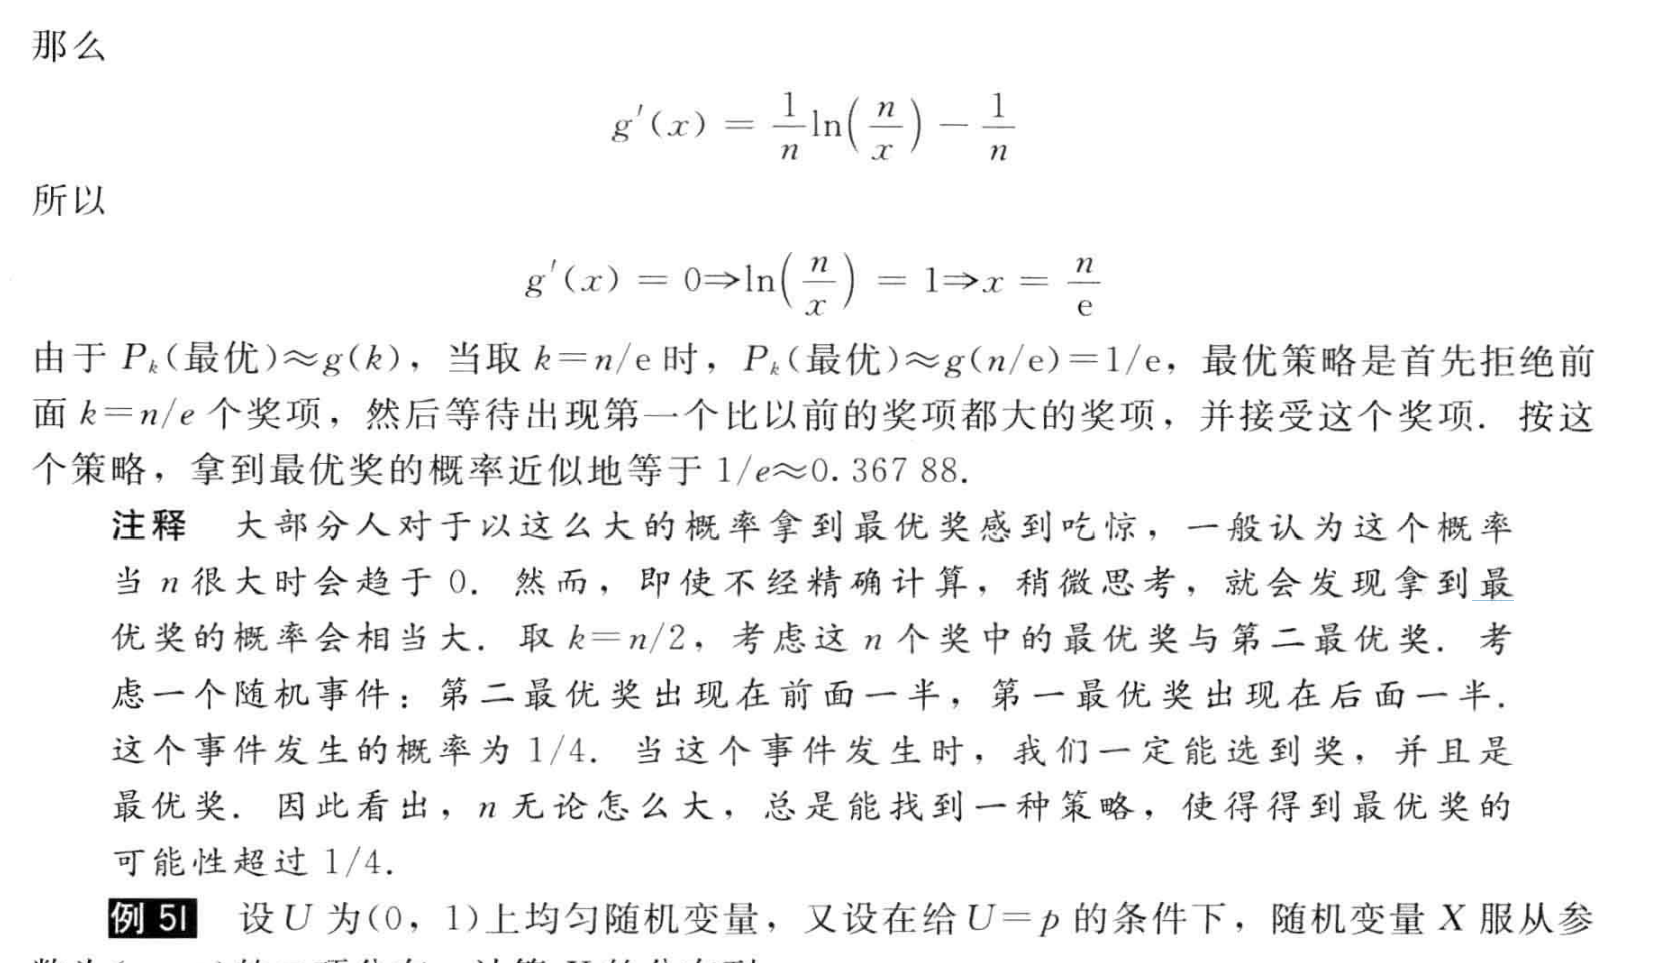 那么
g′(x) = 1/n ln(n/x) − 1/n
所以
g′(x) = 0⇒ln(n/x) = 1⇒x = n/e
由于 Pₖ(最优)≈g(k)，当取 k=n/e 时，Pₖ(最优)≈g(n/e)=1/e，最优策略是首先拒绝前
面 k=n/e 个奖项，然后等待出现第一个比以前的奖项都大的奖项，并接受这个奖项．按这
个策略，拿到最优奖的概率近似地等于 1/e≈0.367 88.
注释 大部分人对于以这么大的概率拿到最优奖感到吃惊，一般认为这个概率
当 n 很大时会趋于 0．然而，即使不经精确计算，稍微思考，就会发现拿到最
优奖的概率会相当大．取 k=n/2，考虑这 n 个奖中的最优奖与第二最优奖．考
虑一个随机事件：第二最优奖出现在前面一半，第一最优奖出现在后面一半．
这个事件发生的概率为 1/4．当这个事件发生时，我们一定能选到奖，并且是
最优奖．因此看出，n 无论怎么大，总是能找到一种策略，使得得到最优奖的
可能性超过 1/4.
例 51 设 U 为(0，1)上均匀随机变量，又设在给 U=p 的条件下，随机变量 X 服从参